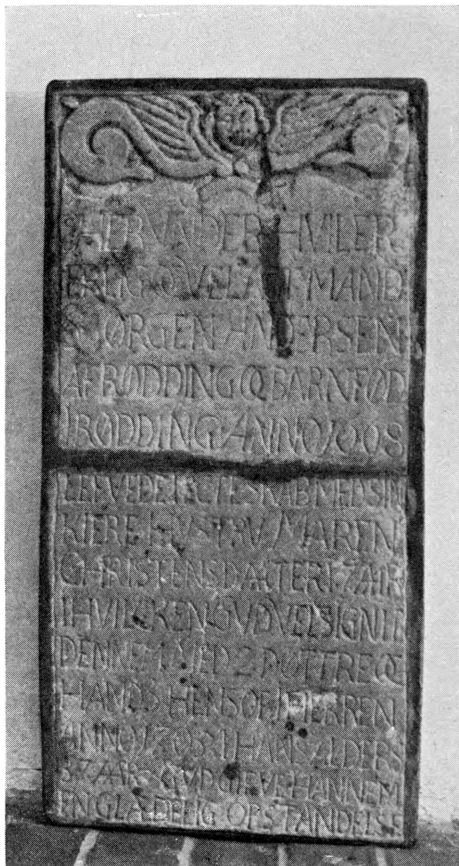 HER VNDER HVILER
ERLIG OC VELACT MAND
JØRGEN ANDERSEN
AF RØDDING OC BARNFØD
I RØDDING ANNO
LEFVEDE I ECTESKAB MED SIN
KIERE HVSTRV MAREN
CHRISTENSDAATTER AAR
I HVILCKEN GVD VELSIGNET
DENNEM MED 2 DØTTRE OC
HERREN
ANNO I HANS ALDERS
AAR GVD GIEVE HANNEM
EN GLADELIG OPSTANDELSE